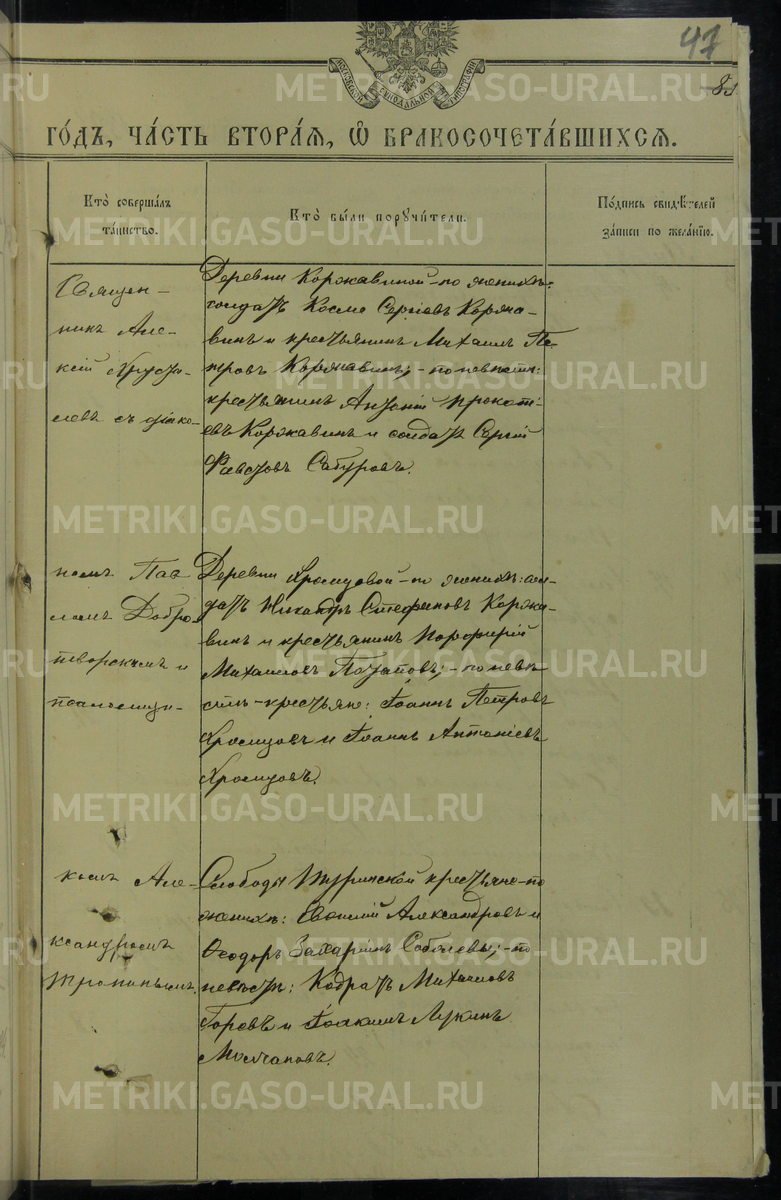 47
МОСКОВСКОЙ СѴНОДАЛЬНОЙ ТИПОГРАФІИ
ГО́ДЪ, ЧА́СТЬ ВТОРА́Я, Ѿ БРАКОСОЧЕТА́ВШИХСЯ.
Кто̀ соверша́лъ
та́инство.
Кто̀ бы́ли поручи́тели.
По́дпись свидѣ́телей
за́писи по жела́нїю.
Священ-
никъ Але-
ксій Хруста-
левъ съ діако-
Деревни Коржавиной - по женихѣ:
солдатъ Косма Сергіевъ Коржа-
винъ и крестьянинъ Михаилъ Пе-
тровъ Коржавинъ; - по невѣстѣ:
крестьянинъ Антоній Прокопі-
евъ Коржавинъ и солдатъ Сергій
Фавстовъ Сабуровъ.
номъ Пав-
ломъ Добро-
творскимъ и
псаломщи-
Деревни Хромцовой - по женихѣ: сол-
датъ Никандръ Стефановъ Коржа-
винъ и крестьянинъ Порфирій
Михаиловъ Потаповъ; - по невѣ-
стѣ - крестьяне: Іоаннъ Петровъ
Хромцовъ и Іоаннъ Антоніевъ
Хромцовъ.
комъ Але-
ксандромъ
Тропинымъ.
Слободы Туринской крестьяне - по
женихѣ: Евѳимій Александровъ и
Ѳеодоръ Захаринъ Соболевы; - по
невѣстѣ: Кодратъ Михаиловъ
Горевъ и Іоакимъ Лукинъ
Молчановъ.
METRIKI.GASO-URAL.RU